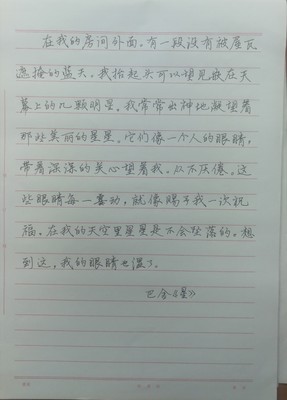 在我的房间外面，有一段没有被屋瓦
遮掩的蓝天。我抬起头可以望见嵌在天
幕上的几颗明星。我常常出神地凝望着
那些美丽的星星。它们像一个人的眼睛，
带着深深的关心望着我，从不厌倦。这
些眼睛每一霎动，就像赐予我一次祝
福。在我的天空里星星是不会坠落的。想
到这，我的眼睛也湿了。
巴金《星》